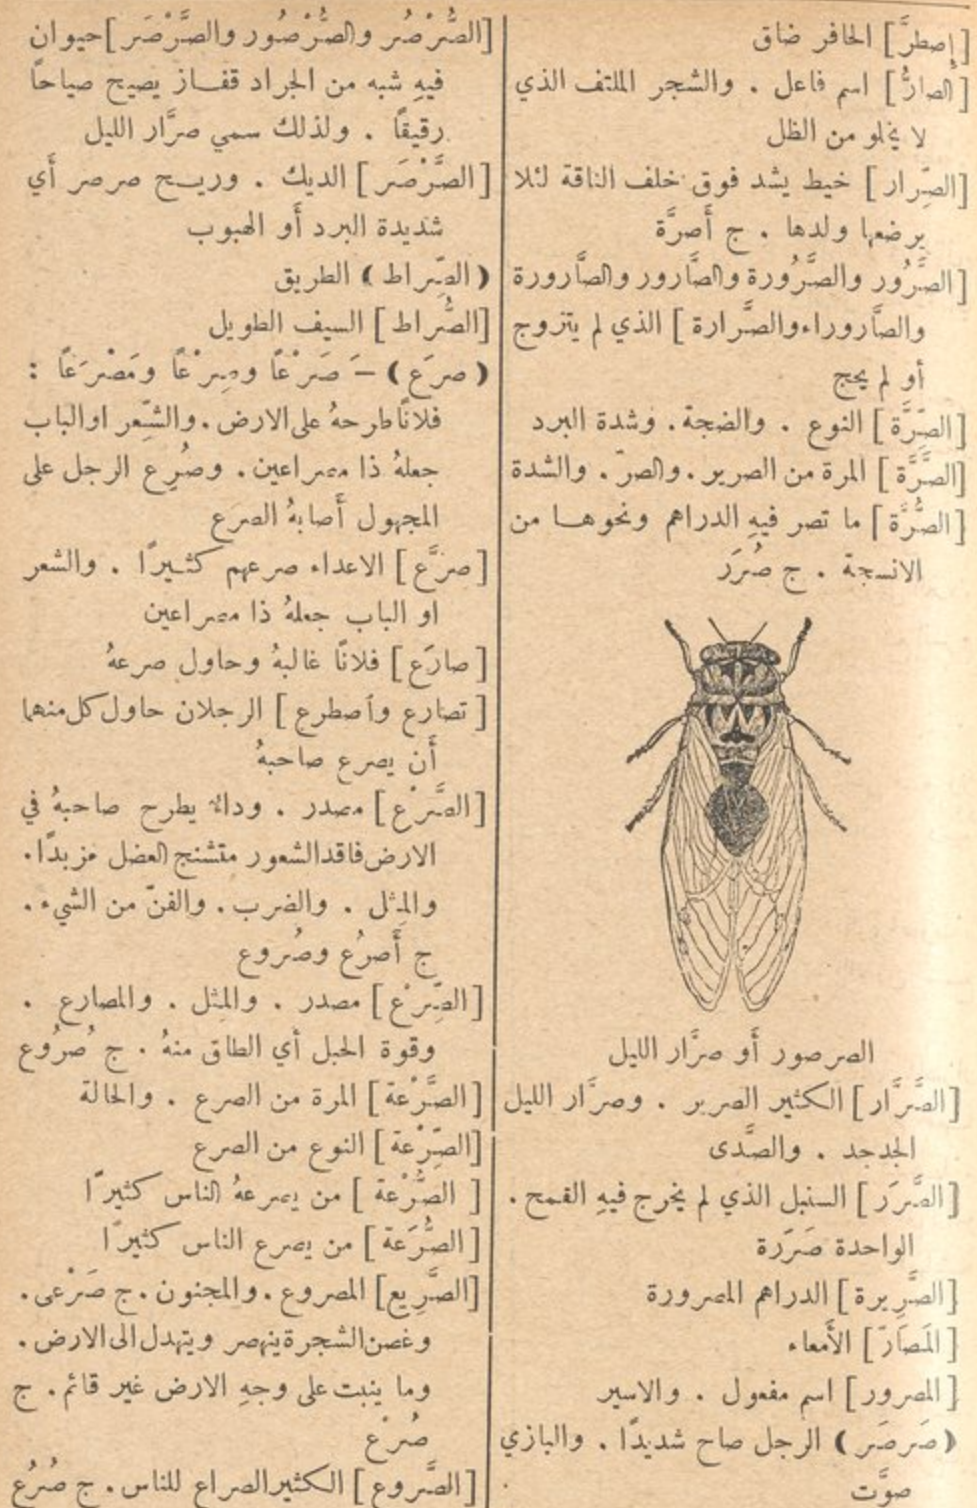 [إصطرَّ] الحافر ضاق
[الصارُّ] اسم فاعل . والشجر الملتف الذي
لا يخلو من الظل
[الصِّرار] خيط يشد فوق خلف الناقة لئلا
يرضعها ولدها . ج أَصرَّة
[الصَّرُور والصَّرُورة والصَّارور والصَّارورة
والصَّاروراء والصَّرارة] الذي لم يتزوج
أو لم يحج
[الصِّرَّة] النوع . والضجة . وشدة البرد
[الصَّرَّة] المرة من الصرير . والصرّ . والشدة
[الصُّرَّة] ما تصر فيهِ الدراهم ونحوها من
الانسجة . ج صُرَر
الصرصور أَو صرَّار الليل
[الصَّرَّار] الكثير الصرير . وصرَّار الليل
الجدجد . والصَّدى
[الصَّرَر] السنبل الذي لم يخرج فيهِ القمح .
الواحدة صَرَرة
[الصَّرِيرة] الدراهم المصرورة
[المَصَارّ] الأَمعاء
[المصرور] اسم مفعول . والاسير
(صَرصَر) الرجل صاح شديدًا . والبازي
صوَّت
[الصُّرْصُر والصُّرْصُور والصَّرْصَر] حيوان
فيهِ شبه من الجراد قفاز يصيح صياحًا
رقيقًا . ولذلك سمي صرَّار الليل
[الصَّرْصَر] الديك . وريح صرصر أَي
شديدة البرد أَو الهبوب
(الصِّراط) الطريق
[الصُّراط] السيف الطويل
(صرَع) –َ صَرْعًا وصِرْعًا ومَصْرَعًا :
فلانًا طرحهُ على الارض . والشِّعر او الباب
جعلهُ ذا مصراعين . وصُرِع الرجل على
المجهول أَصابهُ الصرع
[صرَّع] الاعداء صرعهم كثيرًا . والشعر
او الباب جعلهُ ذا مصراعين
[صارَع] فلانًا غالبهُ وحاول صرعهُ
[تصارع وأصطرع] الرجلان حاول كل منهما
أَن يصرع صاحبهُ
[الصَّرْع] مصدر . وداء يطرح صاحبهُ في
الارض فاقد الشعور متشنج العضل مزبدًا .
والمِثل . والضرب . والفنّ من الشيء .
ج أَصرُع وصُروع
[الصِّرْع] مصدر . والمِثل . والمصارع .
وقوة الحبل أي الطاق منهُ . ج صُرُوع
[الصَّرْعة] المرة من الصرع . والحالة
[الصِّرْعة] النوع من الصرع
[الصُّرْعة] من يصرعهُ الناس كثيرًا
[الصُّرَعة] من يصرع الناس كثيرًا
[الصَّرِيع] المصروع . والمجنون . ج صَرْعى .
وغصن الشجرة ينهصر ويتهدل الى الارض .
وما ينبت على وجهِ الارض غير قائم . ج
صُرْع
[الصَّروع] الكثير الصراع للناس . ج صُرُع